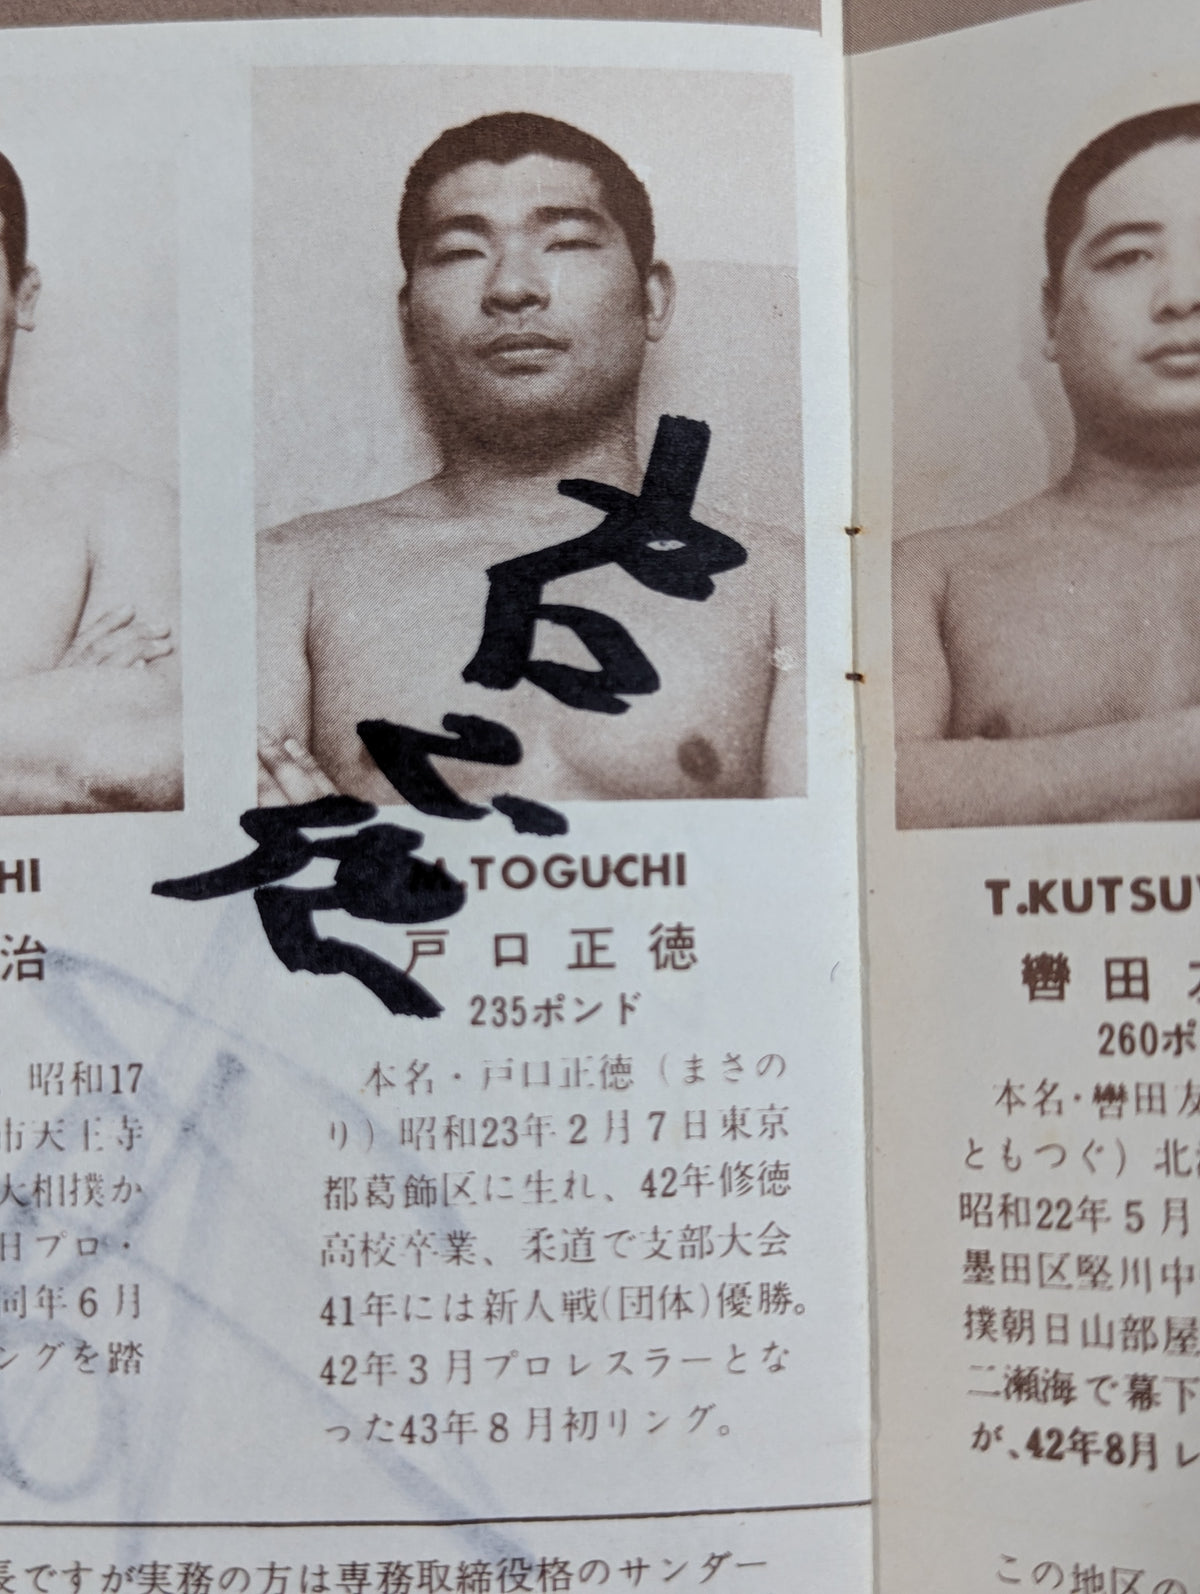 HI
治
昭和17
市天王寺
大相撲か
日プロ・
同年6月
ングを踏
M.TOGUCHI
戸口正徳
235ポンド
本名・戸口正徳(まさの
り)昭和23年2月7日東京
都葛飾区に生れ、42年修徳
高校卒業、柔道で支部大会
41年には新人戦(団体)優勝。
42年3月プロレスラーとな
った43年8月初リング。
長ですが実務の方は専務取締役格のサンダー
T.KUTSU
轡田
260ポ
本名・轡田友
ともつぐ)北
昭和22年5月
墨田区堅川中
撲朝日山部屋
二瀬海で幕下
が、42年8月レ
この地区の